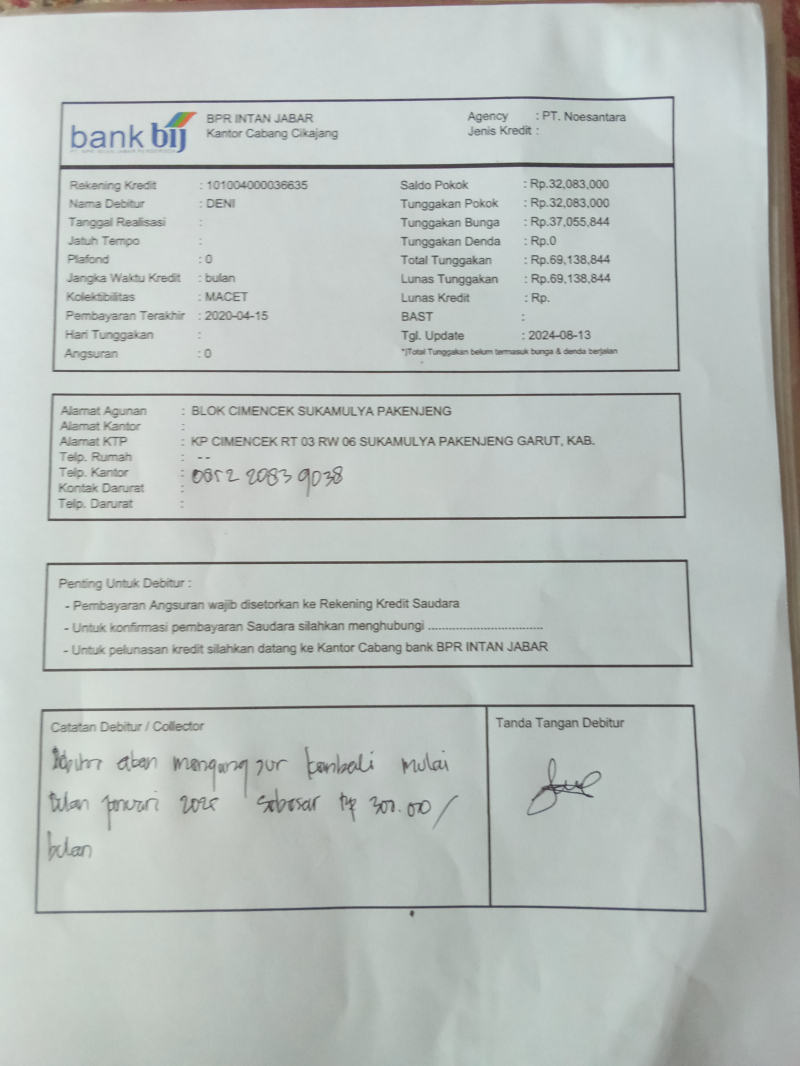 bank bij
BPR INTAN JABAR
Kantor Cabang Cikajang
Agency : PT. Noesantara
Jenis Kredit :
Rekening Kredit : 101004000036635
Nama Debitur : DENI
Tanggal Realisasi :
Jatuh Tempo :
Plafond : 0
Jangka Waktu Kredit : bulan
Kolektibilitas : MACET
Pembayaran Terakhir : 2020-04-15
Hari Tunggakan :
Angsuran : 0
Saldo Pokok : Rp.32,083,000
Tunggakan Pokok : Rp.32,083,000
Tunggakan Bunga : Rp.37,055,844
Tunggakan Denda : Rp.0
Total Tunggakan : Rp.69,138,844
Lunas Tunggakan : Rp.69,138,844
Lunas Kredit : Rp.
BAST :
Tgl. Update : 2024-08-13
*)Total Tunggakan belum termasuk bunga & denda berjalan
Alamat Agunan : BLOK CIMENCEK SUKAMULYA PAKENJENG
Alamat Kantor :
Alamat KTP : KP CIMENCEK RT 03 RW 06 SUKAMULYA PAKENJENG GARUT, KAB.
Telp. Rumah : --
Telp. Kantor : 0852 2083 9038
Kontak Darurat :
Telp. Darurat :
Penting Untuk Debitur :
- Pembayaran Angsuran wajib disetorkan ke Rekening Kredit Saudara
- Untuk konfirmasi pembayaran Saudara silahkan menghubungi ................................
- Untuk pelunasan kredit silahkan datang ke Kantor Cabang bank BPR INTAN JABAR
Catatan Debitur / Collector
mengangsur kembali mulai
bulan januari 2025 sebesar Rp 300.000 /
bulan
Tanda Tangan Debitur